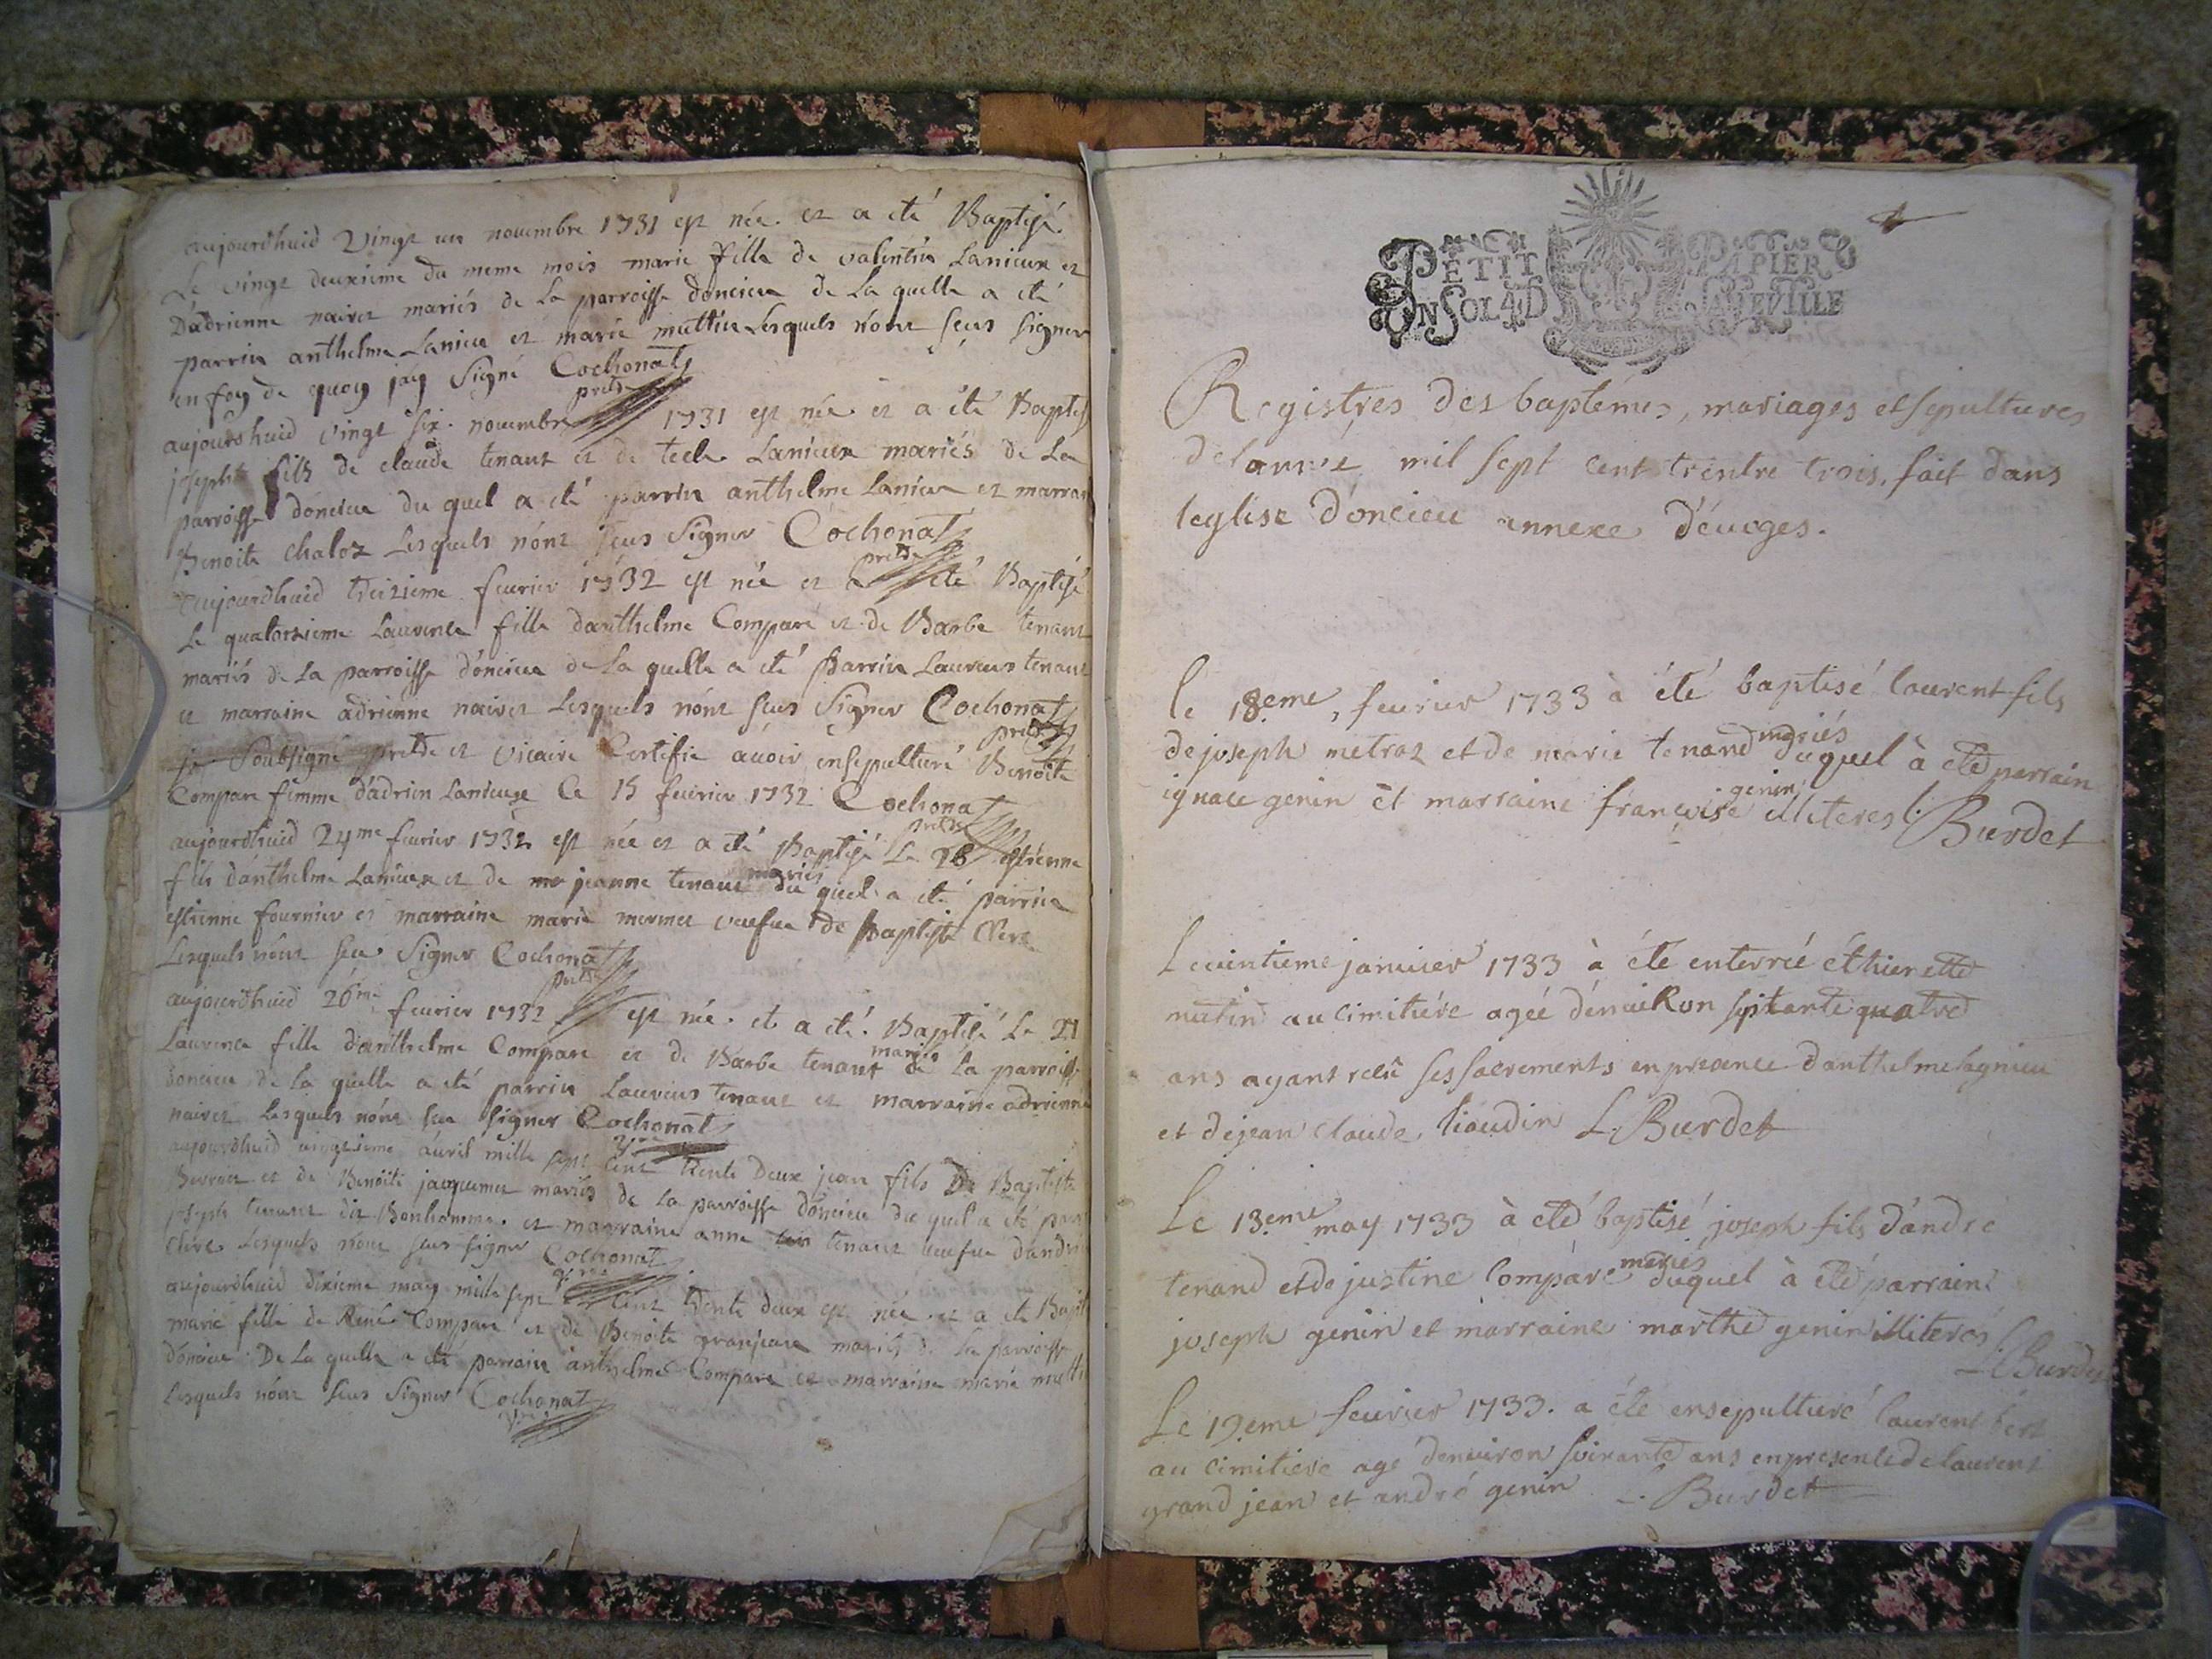 aujourdhuid Vingt un novembre 1731 est née et a eté Baptisé
Le vingt deuxieme du meme mois marie fille de valentin Lanieux et
D'adrienne naivet mariés de La parroisse doncieu de La quelle a eté
parrin anthelme Lanieu et marie muttin Lesquels n'ont seus signer
en foy de quoy jáy Signé Cochonat
pretre
aujourdhuid vingt six novembre 1731 est née et a été Baptisé
joseph fils de claude tenant et de tecle Lanieux mariés de La
parroisse doncieu du quel a eté parrin anthelme Lanieu et marraine
Benoite chaloz Lesquels nónt seus Signer Cochonat
pretre
aujourdhuid treizieme feurier 1732 est née et a eté Baptisé
Le quatorzieme Laurence fille danthelme Compare et de Barbe tenant
mariés de La parroisse d'oncieu de La quelle a eté parrin Laurens tenant
et marraine adrienne naivet Lesquels nónt seus Signer Cochonat
pretre
je Soubsigné pretre et vicaire Certifie auoir ensepulturé Benoite
Compare femme d'adrien Lanieux Ce 15 feurier 1732 Cochonat
pretre
aujourdhuid 24me feurier 1732 est née et a eté Baptisé Le estienne
fils d'anthelme Lanieux et de jeanne tenant mariés du quel a eté parrin
estienne fournier et marraine marie mermet veufue de Baptiste
Lesquels nónt seu Signer Cochonat
pretre
aujourdhuid 26me feurier 1732 est née et a eté Baptisé Le 27
Laurence fille d'anthelme Compare et de Barbe tenant mariés de la parroisse
doncieu de La quelle a eté parrin Laurens tenant et marraine adrienne
naivet Lesquels nónt seu signer Cochonat
aujourdhuid vingtieme auril mille sept cent trente Deux jean fils De Baptiste
et de Benoite jacquemet mariés de La parroisse d'oncieu du quel a eté parrin
joseph tenant dit Bonhomme et marraine anne tenant veufue dandré
Lesquels nónt seus signer Cochonat
aujourdhuid dixieme may mille sept cent trente deux est née et a eté Baptisé
marie fille de René Compare et de Benoite granjean mariés de La parroisse
d'oncieu De La quelle a eté parrain anthelme Compare et marraine marie muttin
Lesquels nónt seus Signer Cochonat
PETIT PAPIER
UN SOL 4 D LA FEVILLE
Registres des baptémes, mariages et sepultures
de lanneé mil sept cent trentre trois, fait dans
leglise d'oncieu annexe d'éuoges.
le 18.eme, feurier 1733 à été baptisé laurent fils
de joseph metraz et de marie tenand mariés duquel à eté parrain
ignace genin et marraine françoise genin illiteres L. Burdet
Le uintieme januier 1733 à éte enterreé éthienette
matin au cimitiére ageé d'enuiRon septante quatre
ans ayant receu ses sacrements en presence d'anthelme lagnieu
et de jean claude liaudin L. Burdet
Le 13.eme may 1733 à eté baptisé joseph fils d'andré
tenand et de justine Compáre mariés duquel à eté parrain
joseph genin et marraine marthe genin illiterés
L. Burdet
Le 19.eme feurier 1733. a éte ensepulturé laurent
au cimitiere agé denuiron soixante ans en presence de laurent
grand jean et andré genin L. Burdet